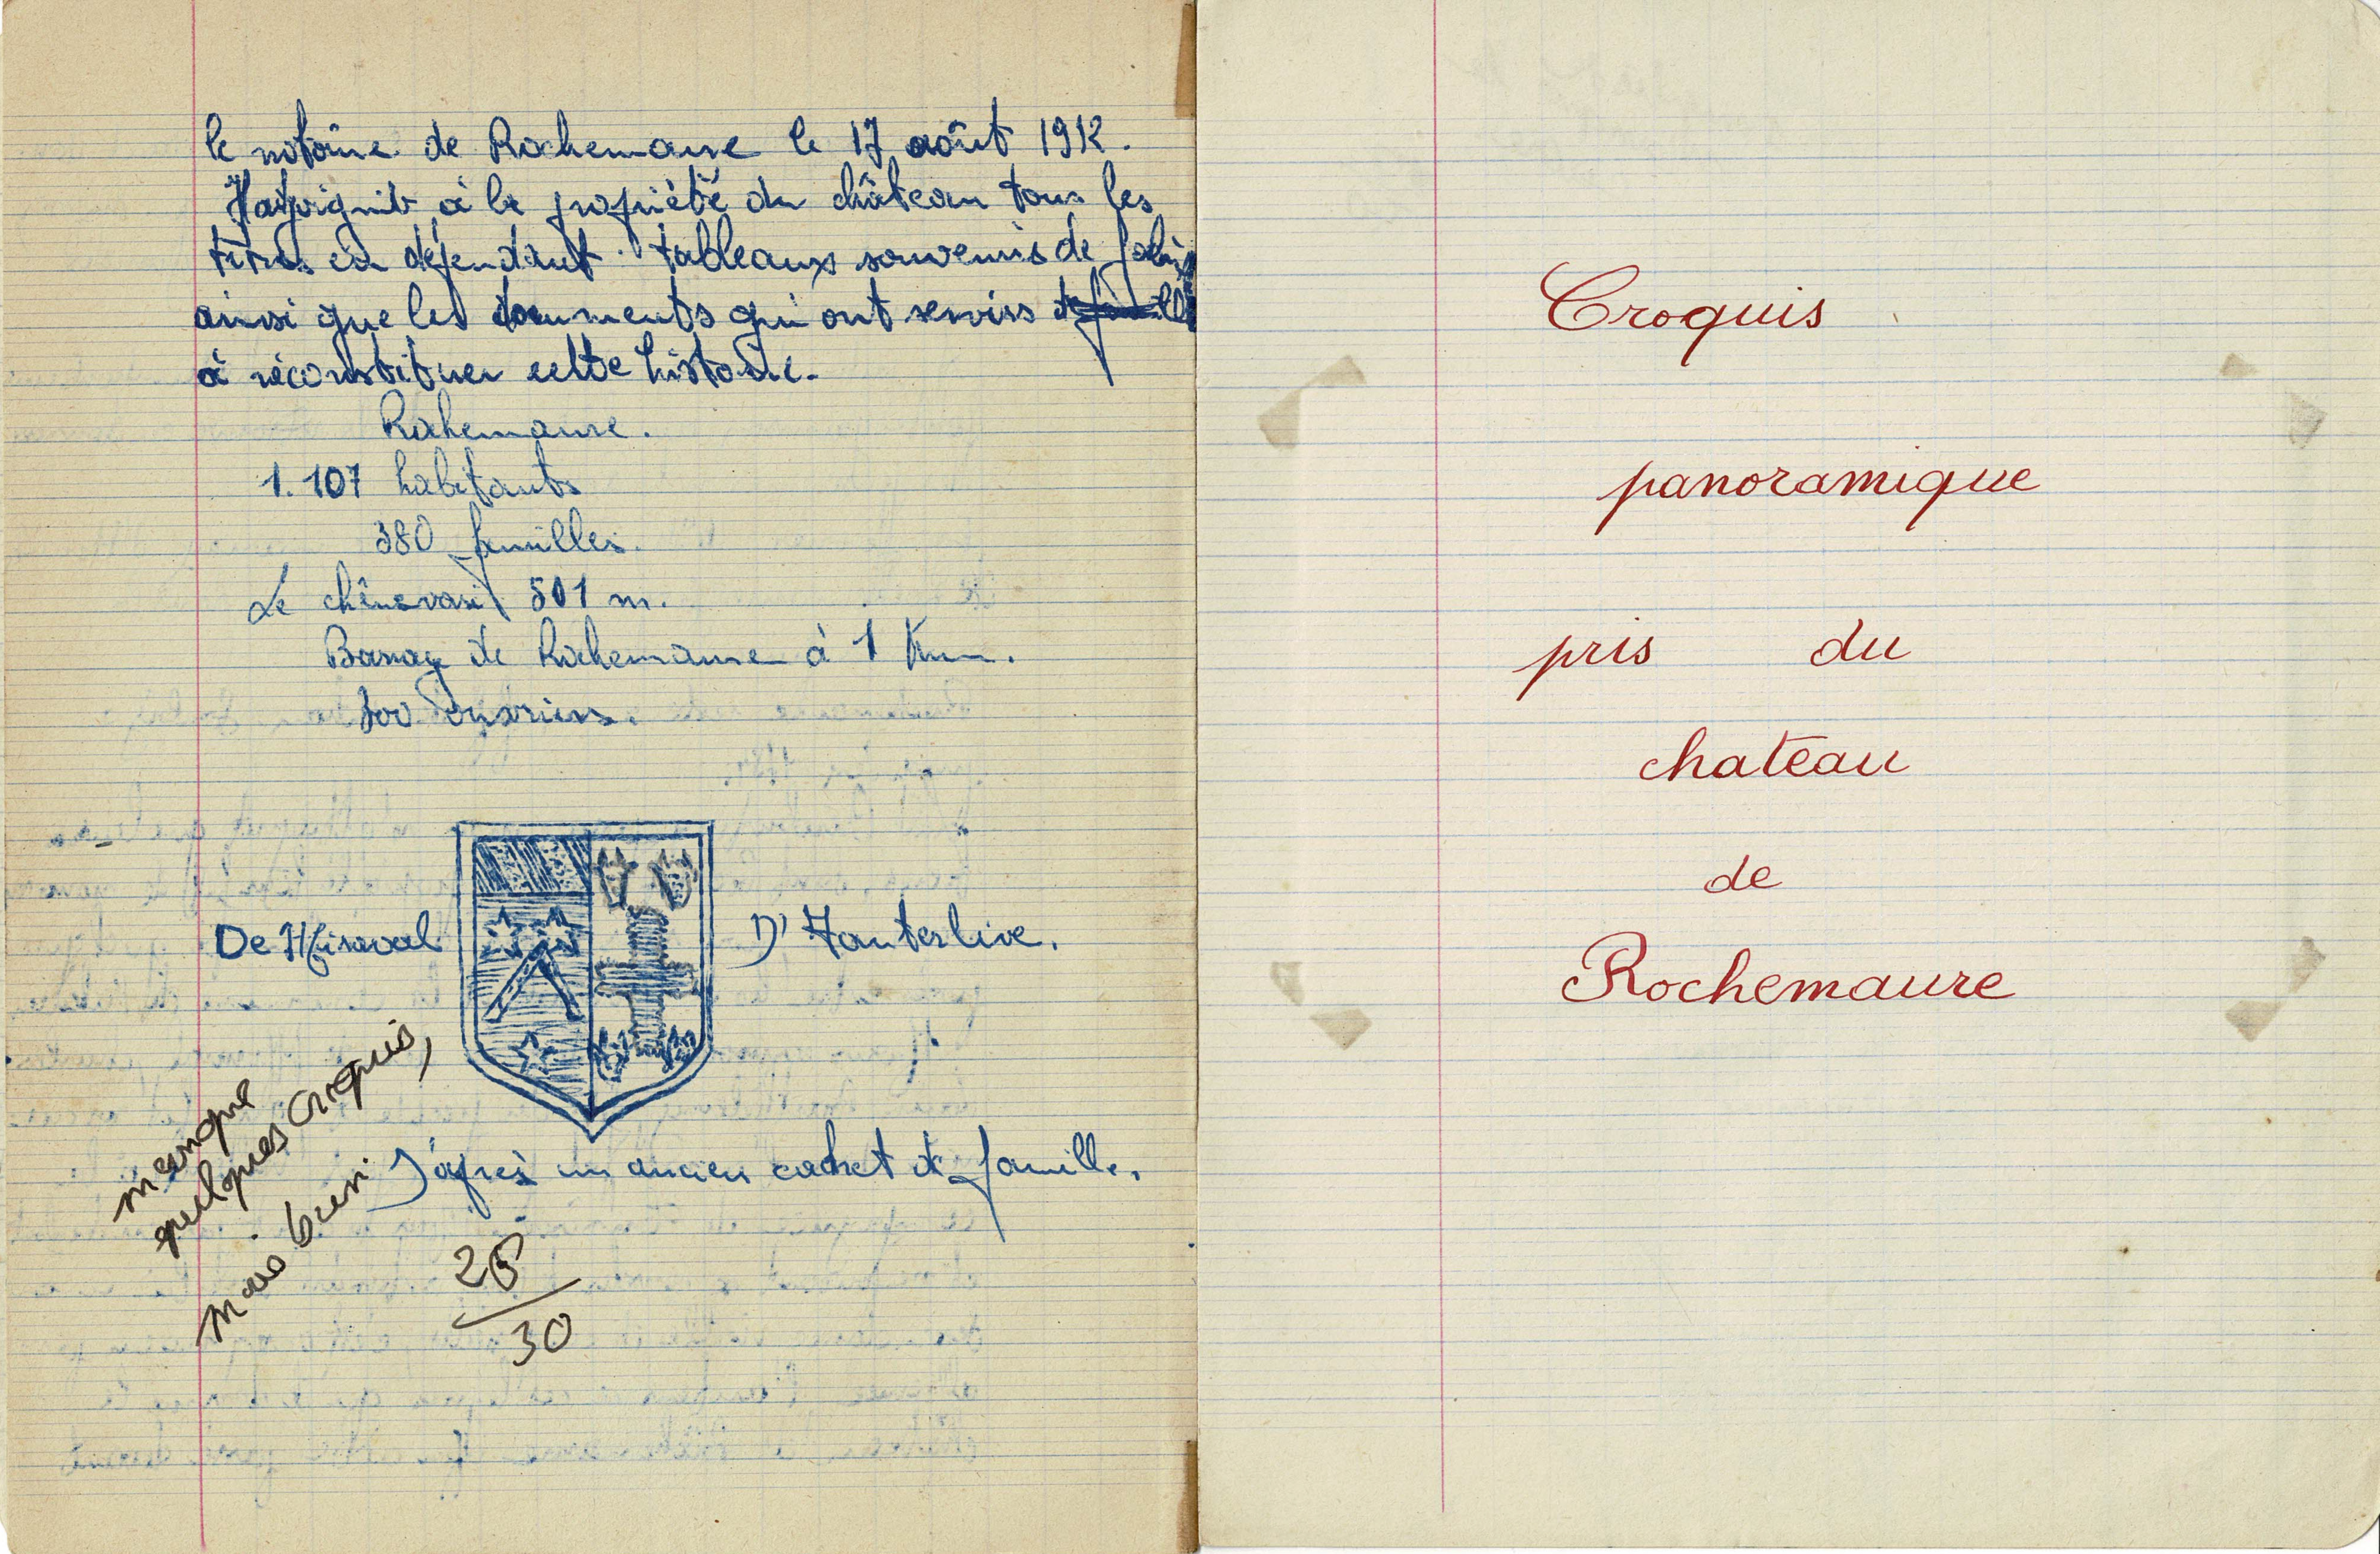 le notaire de Rochemaure le 17 août 1912.
Il adjoignit à la propriété du château tous les
titres en dépendant tableaux souvenirs de famille
ainsi que les documents qui ont servirs
à réconstituer cette histoire.
Rochemaure.
1.107 habitants
380 familles.
Le chênavari 501 m.
Barrage de Rochemaure à 1 Km.
300 ouvriers.
De Miraval
D'Hauterlive.
D'après un ancien cachet de famille.
manque
quelques croquis,
mais bien
25
30
Croquis
panoramique
pris du
chateau
de
Rochemaure